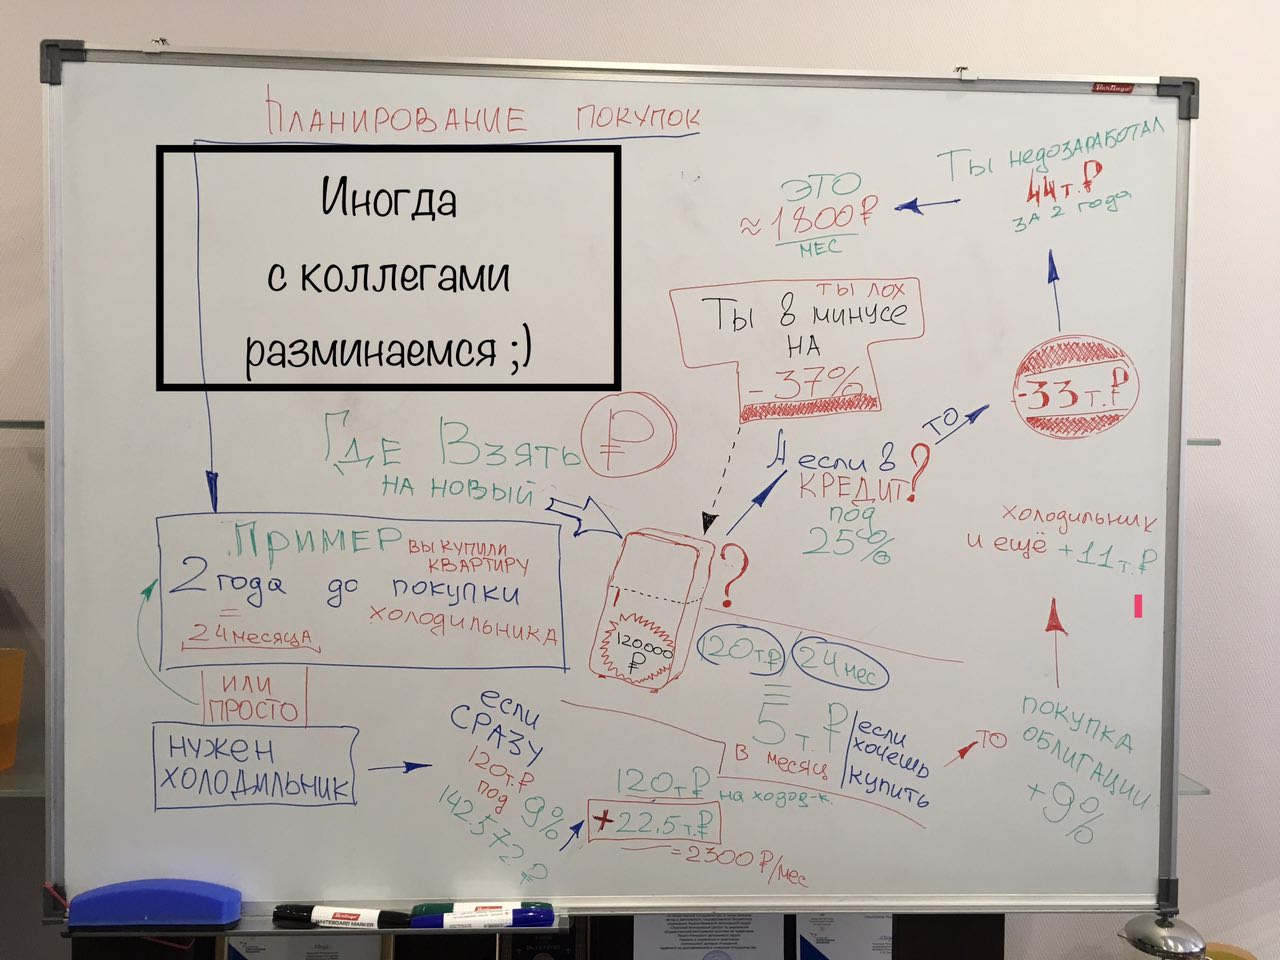 Планирование покупок
Иногда
с коллегами
разминаемся ;)
Где Взять ₽
на новый
Пример вы купили
квартиру
2 года до покупки
=
24 месяца
холодильника
или
просто
нужен
холодильник
если
СРАЗУ
120т.₽
под 9%
142.572₽
120т₽ на холод-к.
+22,5т.₽
=2300₽/мес
120000
₽
?
120т.₽ / 24 мес
=
5 т.₽
в месяц
если
хочешь
купить
то
покупка
облигации
+9%
холодильник
и ещё +11т.₽
А если в
кредит?
под
25%
то
-33т.₽
Ты недозаработал
44т.₽
за 2 года
это
≈1800₽
мес
ты лох
Ты в минусе
на
-37%
Berlingo
Berlingo
WHITEBOARD MARKER